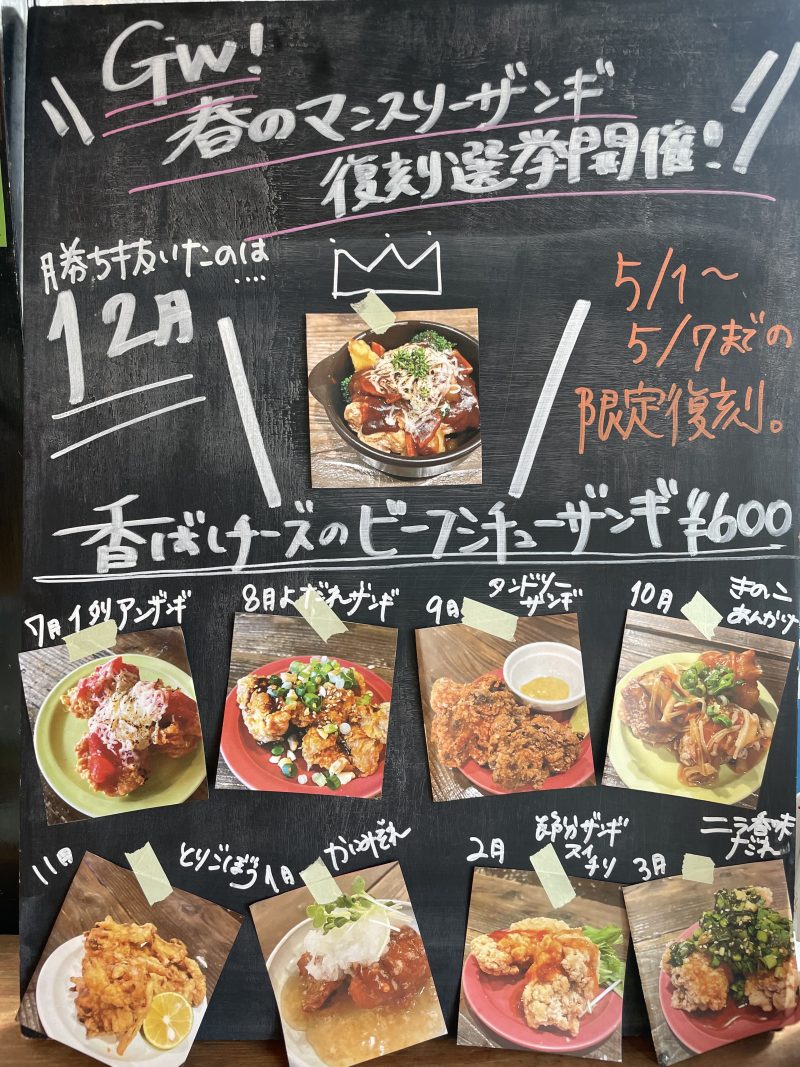 GW!
春のマンスリーザンギ
復刻選挙開催!
勝ち抜いたのは....
12月
5/1〜
5/7までの
限定復刻。
香ばしチーズのビーフシチューザンギ ¥600
7月イタリアンザンギ
8月よだれザンギ
9月 タンドリー
ザンギ
10月 きのこ
あんかけ
11月 とりごぼう
1月 かにみぞれ
2月 節分ザンギ
スイチリ
3月 ニラ香味
だれ